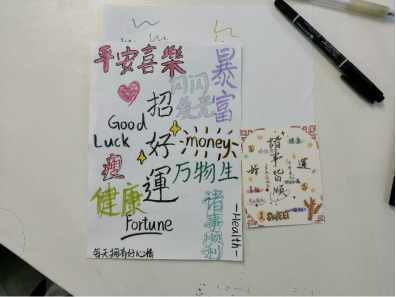 平安喜樂
暴富
闪闪
发光
招
好
運
Good
Luck
money
瘦
万物生
健康
Fortune
諸事順利
-Health-
每天擁有好心情
諸事皆順
好
運
SWEET